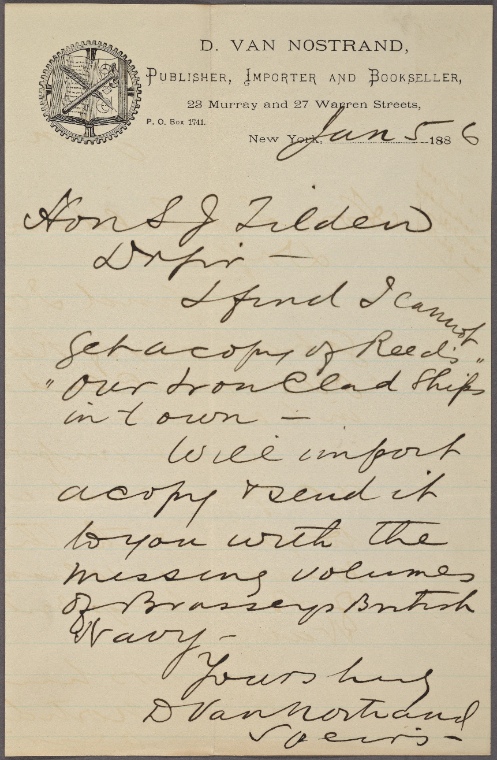 D. VAN NOSTRAND,
PUBLISHER, IMPORTER AND BOOKSELLER,
23 Murray and 27 Warren Streets,
P. O. Box 1741.
New York, Jan 5 1886
Hon S J Tilden
Dr Sir —
I find I cannot
get a copy of Reed's
"Our Iron Clad Ships"
in town —
Will import
a copy & send it
to you with the
missing volumes
of Brasseys British
Navy —
Yours truly
D Van Nostrand